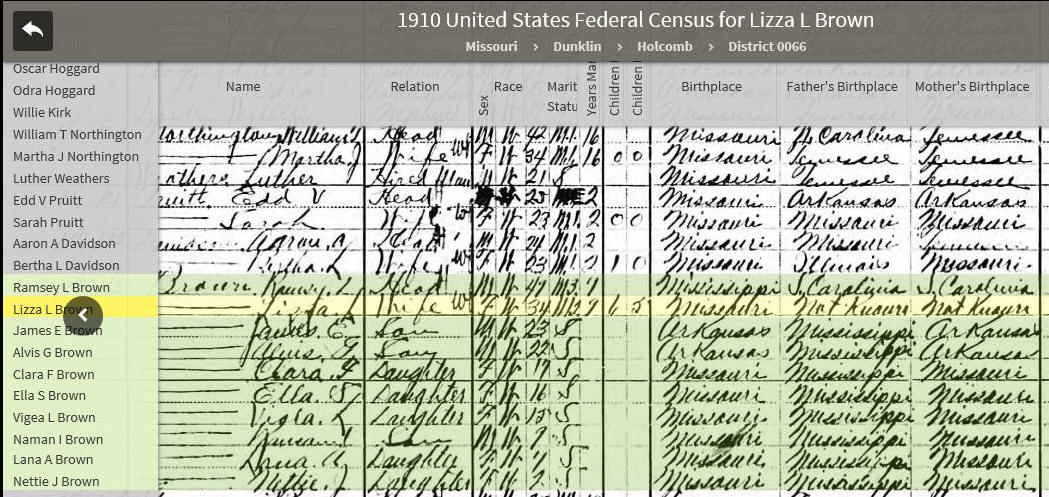 1910 United States Federal Census for Lizza L Brown
Missouri > Dunklin > Holcomb > District 0066
Oscar Hoggard
Odra Hoggard
Willie Kirk
Name Relation Sex Race Marit Statu Years Mar Children Children Birthplace Father's Birthplace Mother's Birthplace
William T Northington Head M W 42 M1 16 Missouri N. Carolina Tennessee
Martha J Northington Martha J Wife F W 34 M1 16 0 0 Missouri Tennessee Tennessee
Luther Weathers Luther Hired Man M W 21 S Missouri Tennessee Tennessee
Edd V Pruitt Edd V Head 25 2 Missouri Arkansas Arkansas
Sarah Pruitt Sarah Wife F W 23 M1 2 0 0 Missouri Missouri Missouri
Aaron A Davidson Aaron A. Head M W 24 M1 2 Missouri Missouri
Bertha L Davidson Bertha L Wife F W 23 M1 2 1 0 Missouri Illinois Missouri
Ramsey L Brown Brown Head M W 47 Mississippi S. Carolina S. Carolina
Lizza L Brown Wife F W 34 M2 9 6 5 Missouri Not Known Not Known
James E Brown James E. Son M W 23 S Arkansas Mississippi Arkansas
Alvis G Brown Alvis G Son M W 22 S Arkansas Mississippi Arkansas
Clara F Brown Clara F Daughter F W 17 S Missouri Mississippi Missouri
Ella S Brown Ella S. Daughter F W 16 S Missouri Mississippi Missouri
Vigea L Brown Daughter F W 13 S Missouri Mississippi Missouri
Naman I Brown Son M W 9 S Missouri Mississippi Missouri
Lana A Brown Lana A. Daughter F W 4 S Missouri Mississippi Missouri
Nettie J Brown Nettie J. Daughter F W 2 S Missouri Mississippi Missouri